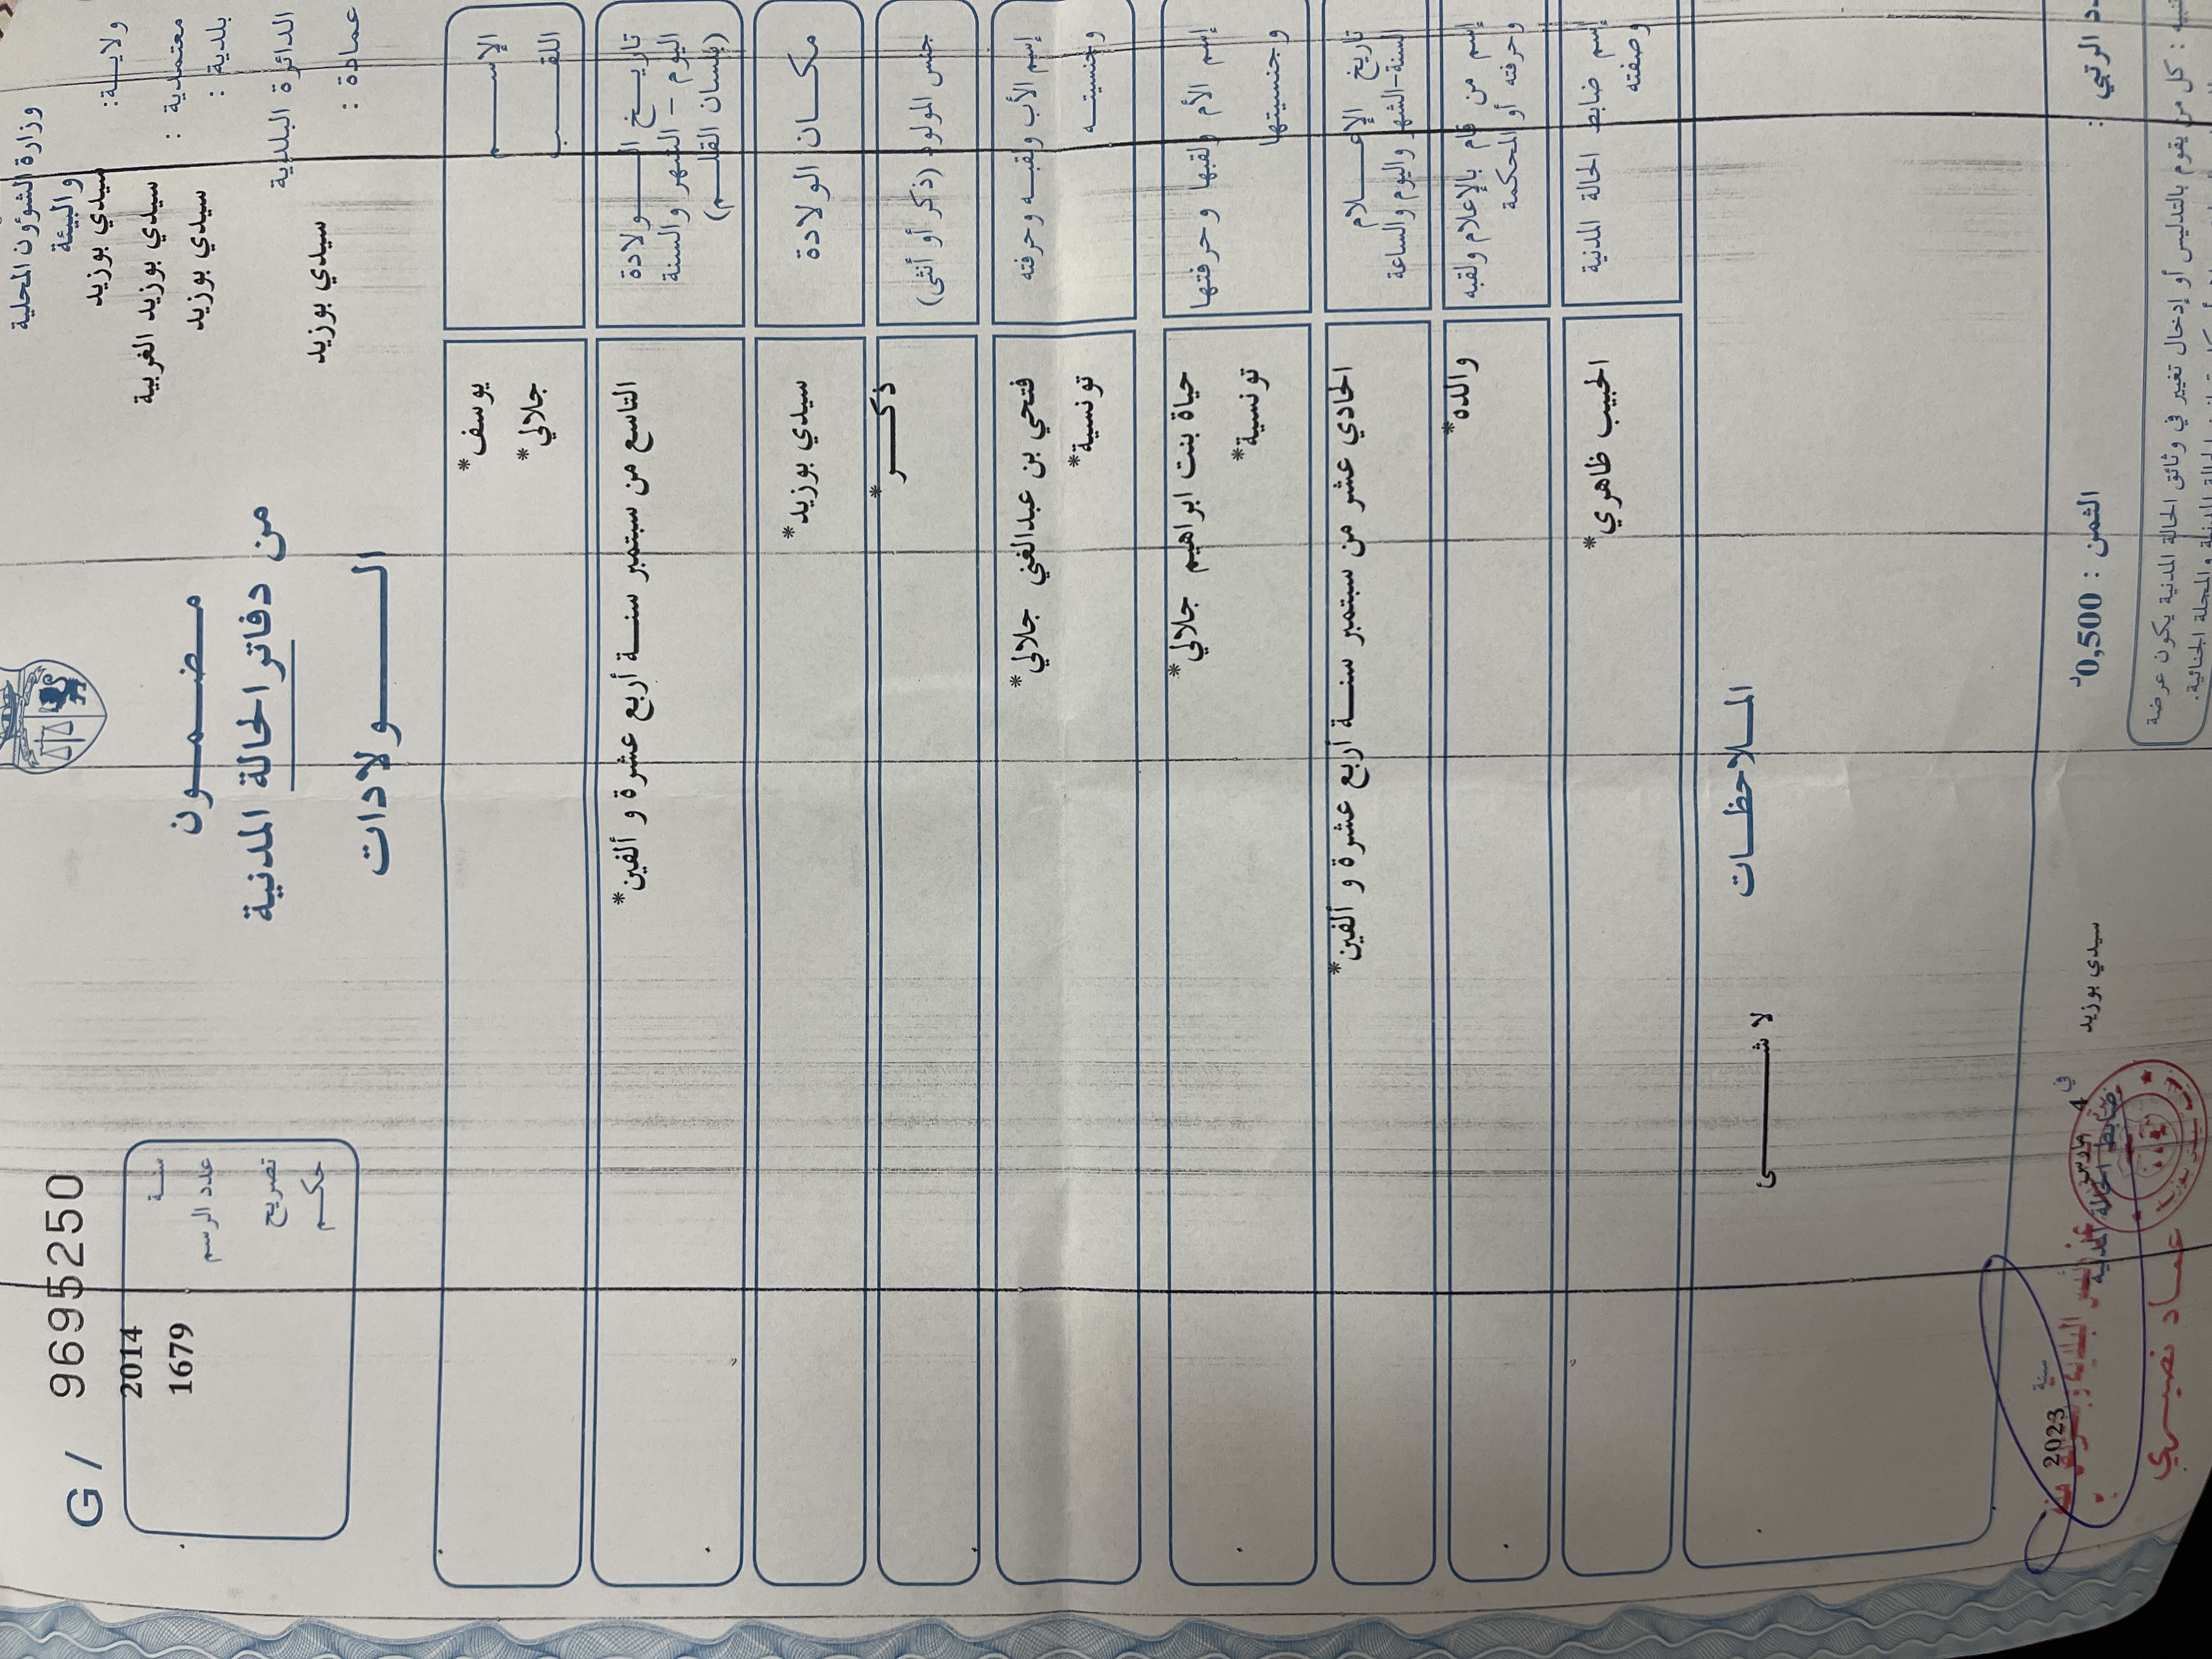 وزارة الشؤون المحلية
والبيئة
ولايـــة: سيدي بوزيد
معتمدية : سيدي بوزيد الغربية
بلدية : سيدي بوزيد
الدائرة البلدية
عمادة : سيدي بوزيد
مضـمـــون
من دفاتر الحالة المدنية
الــــولادات
G / 9695250
سنـة 2014
عدد الرسم 1679
تصريح
حكـم
الإســــم يوسف*
اللقــــب جلالي*
تاريــخ الــــولادة
اليوم – الشهر والسنة
(بلسان القلـــم)
التاسع من سبتمبر سنـــة أربع عشرة و ألفين*
مكـــان الولادة
سيدي بوزيد*
جنس المولود (ذكر أو أنثى)
ذكـــر*
إسم الأب ولقبـه وحرفته
وجنسيتـــه
فتحي بن عبدالغني جلالي*
تونسية*
إسم الأم ولقبها وحرفتها
وجنسيتها
حياة بنت ابراهيم جلالي*
تونسية*
تاريخ الإعــــلام
السنة-الشهر واليوم والساعة
الحادي عشر من سبتمبر سنـــة أربع عشرة و ألفين*
إسم من قام بالإعلام ولقبه
وحرفته أو المحكمة
والده*
إسم ضابط الحالة المدنية
وصفته
الحبيب ظاهري*
المــلاحظــات
لا شـــــــئ
الرتبي :
الثمن : 0,500د
سيدي بوزيد
في 4 مارس
سنة 2023
ضابط الحالة المدنية
عمـــاد نصيـــري
: كل من يقوم بالتدليس أو إدخال تغيير في وثائق الحالة المدنية يكون عرضة
المدنية والمجلة الجنائية.